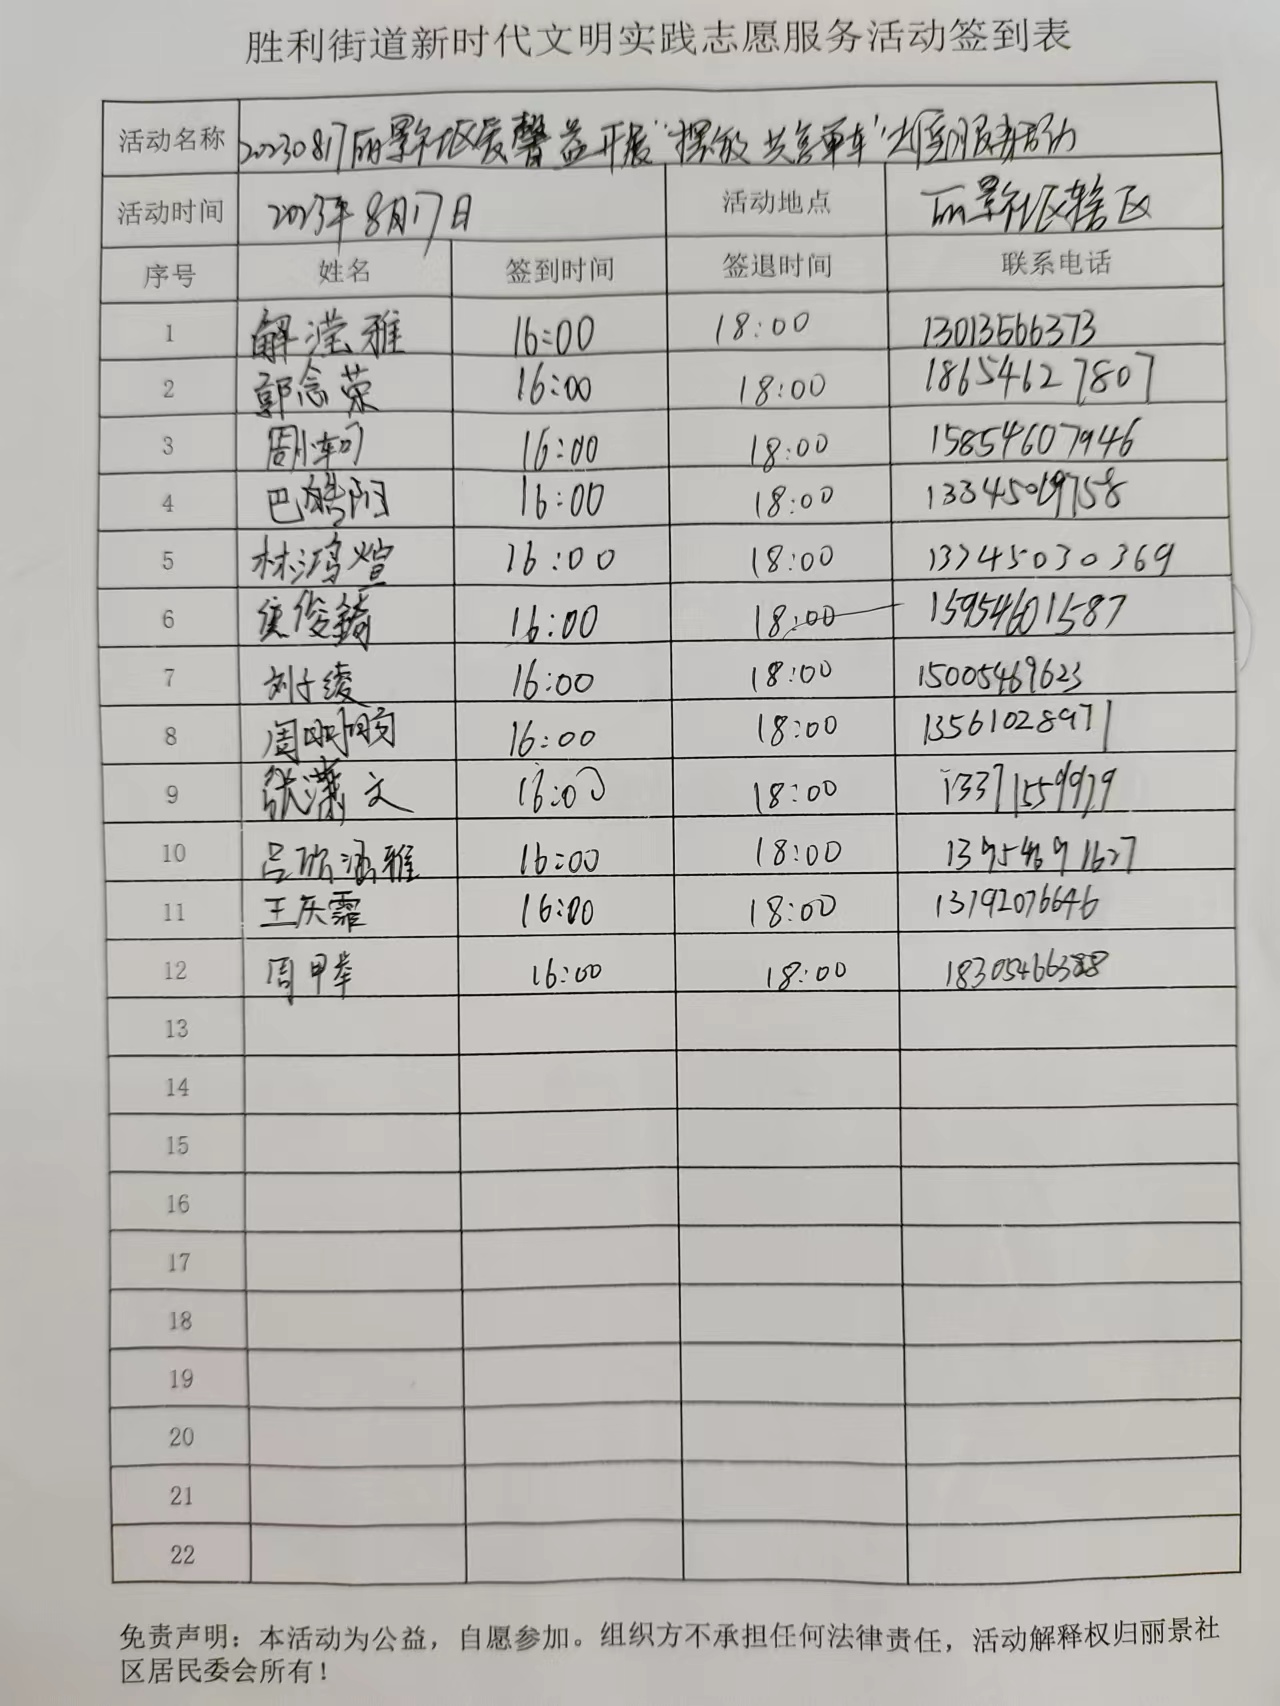 胜利街道新时代文明实践志愿服务活动签到表
活动名称 20230817丽景社区爱馨益开展“摆放共享单车”志愿服务活动
活动时间 2023年8月17日 活动地点 丽景社区辖区
序号 姓名 签到时间 签退时间 联系电话
1 解滢雅 16:00 18:00 13013566373
2 郭念荣 16:00 18:00 18654627807
3 周小轲 16:00 18:00 15854607946
4 巴皓阳 16:00 18:00
5 林鸿煊 16:00 18:00 13745030369
6 16:00 18:00 15954601587
7 刘子绫 16:00 18:00 15005469623
8 周 16:00 18:00 13561028971
9 张潇文 16:00 18:00
10 吕欣涵雅 16:00 18:00 13954691627
11 王庆霏 16:00 18:00 13792076646
12 周甲举 16:00 18:00 18305466388
13
14
15
16
17
18
19
20
21
22
免责声明：本活动为公益，自愿参加。组织方不承担任何法律责任，活动解释权归丽景社
区居民委会所有！